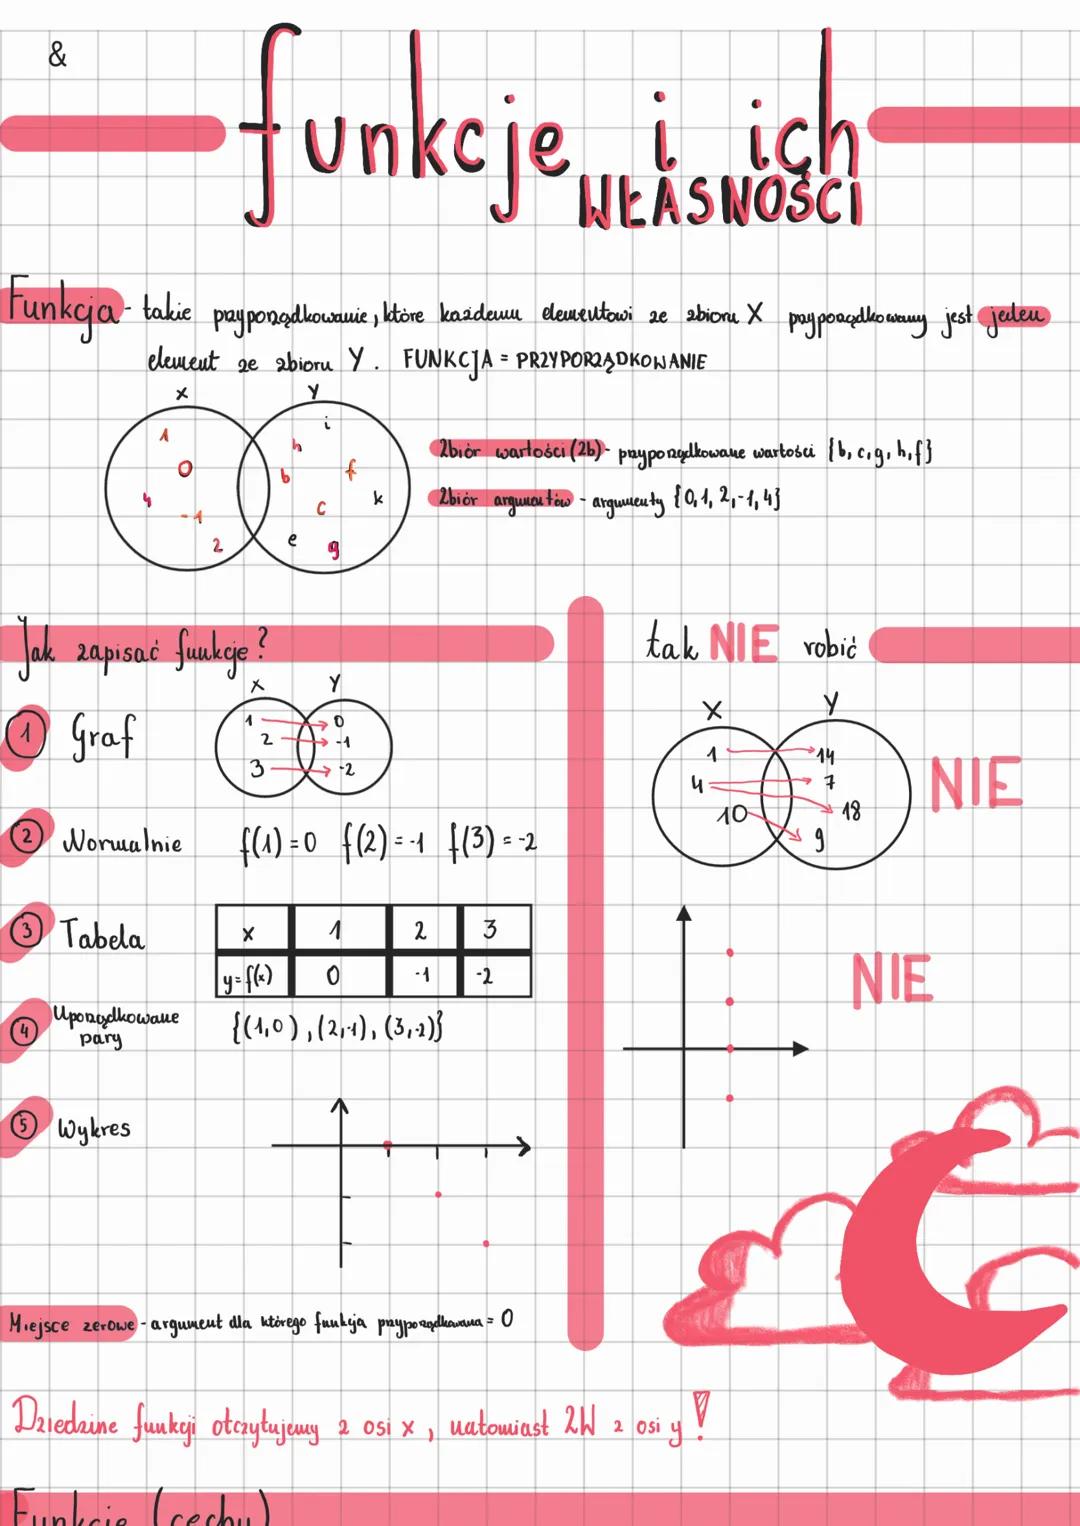 &
funkcje i ich
WŁASNOŚCI
Funkcja - takie przyporządkowanie, które każdemu elementowi ze zbioru X przyporządkowany jest jeden
element ze zbioru Y. FUNKCJA = PRZYPORZĄDKOWANIE
X Y
1 0 4 -1 2
i h b f c k e g
Zbiór wartości (Zb) - przyporządkowane wartości {b, c, g, h, f}
Zbiór argumentów - argumenty {0, 1, 2, -1, 4}
Jak zapisać funkcje?
1 Graf
X Y
1 0
2 -1
3 -2
2 Normalnie f(1) = 0 f(2) = -1 f(3) = -2
3 Tabela
x 1 2 3
y = f(x) 0 -1 -2
4 Uporządkowane
pary
{(1,0), (2,-1), (3,-2)}
5 Wykres
Miejsce zerowe - argument dla którego funkcja przyporządkowana = 0
tak NIE robić
X Y
1 14
4 7
10 18
9
NIE
NIE
Dziedzine funkcji otczytujemy z osi x, natomiast ZW z osi y!
Funkcje (cechy)